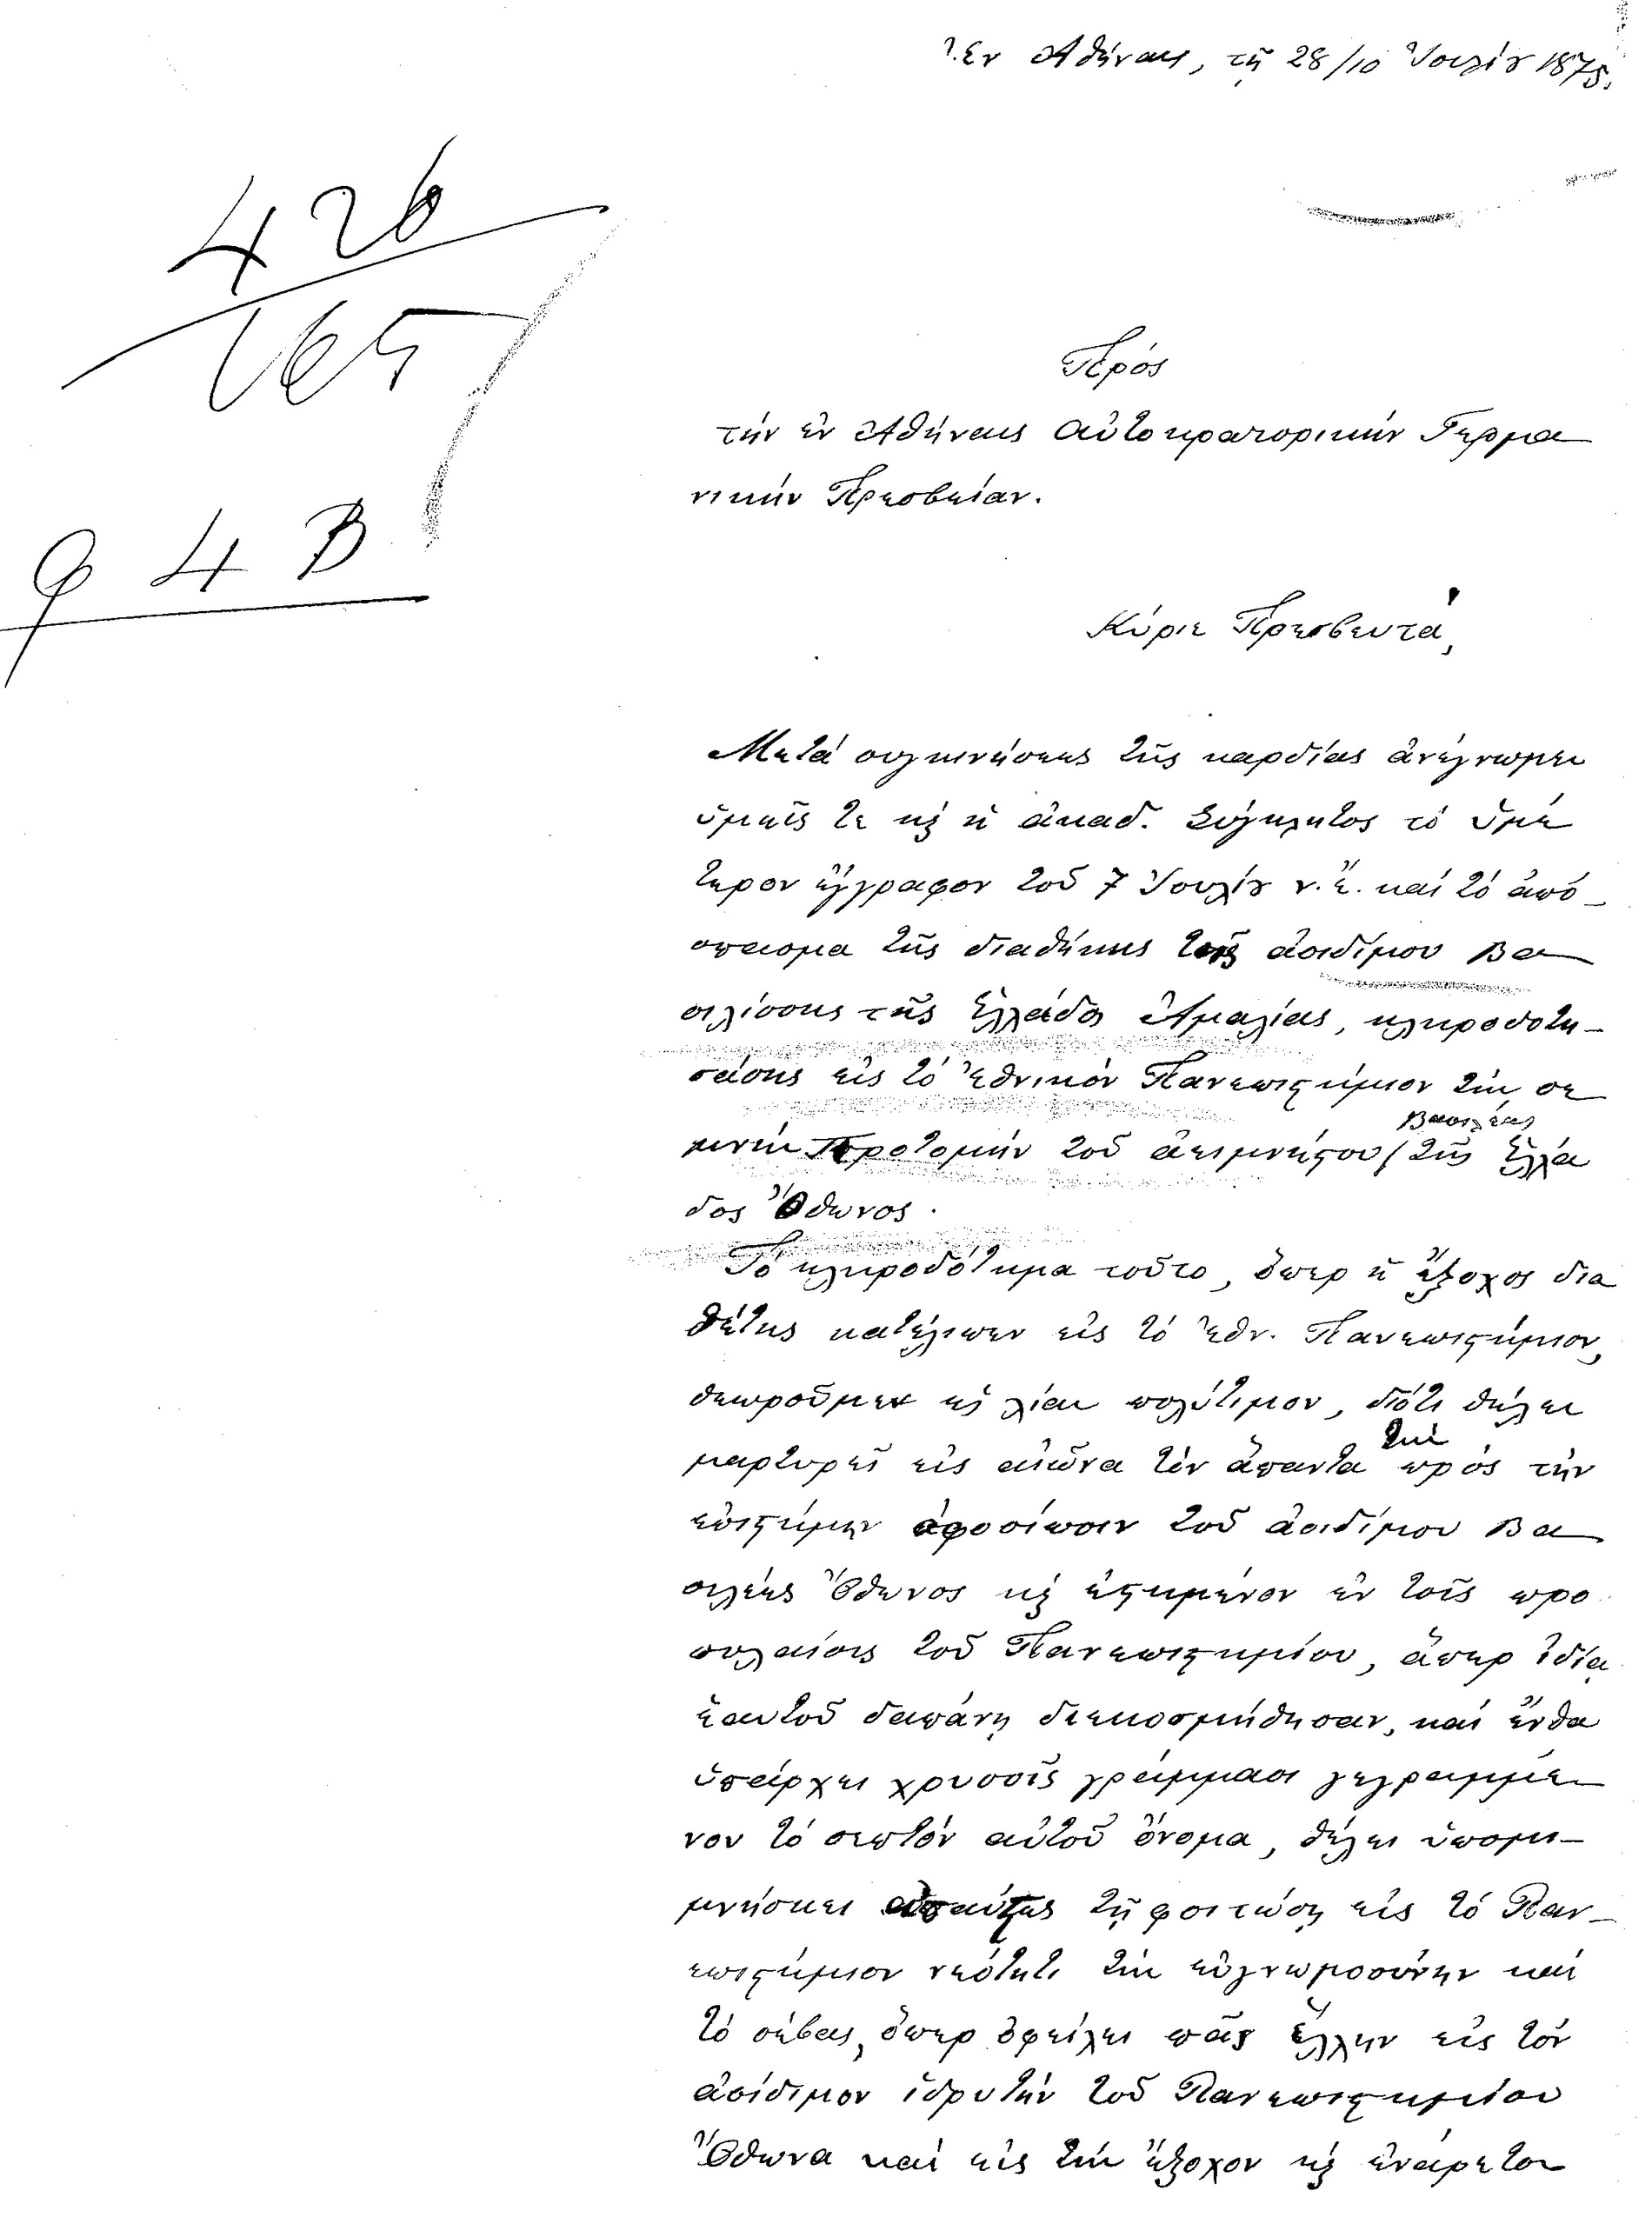 Ἐν Ἀθήναις, τῇ 28/10 Ἰουλίου 1875.
426
165
9 4 B
Πρός
τὴν ἐν Ἀθήναις Αὐτοκρατορικὴν Γερμα
νικὴν Πρεσβείαν.
Κύριε Πρεσβευτά,
Μετὰ συγκινήσεως τῆς καρδίας ἀνέγνωμεν
ἡμεῖς τε κ ἡ ἀκαδ. Σύγκλητος τὸ ὑμέ
τερον ἔγγραφον τοῦ 7 Ἰουλίου ν.ἔ. καὶ τὸ ἀπό-
σπασμα τῆς διαθήκης τῆς ἀοιδίμου Βα
σιλίσσης τῆς Ἑλλάδος Ἀμαλίας, κληροδοτη-
σάσης εἰς τὸ Ἐθνικὸν Πανεπιστήμιον τὴν σε
μνὴν Προτομὴν τοῦ ἀειμνήστου / τῆς Ἑλλά
Βασιλέως
δος Ὄθωνος.
Τὸ κληροδότημα τοῦτο, ὅπερ ἡ ἔξοχος δια
θέτης κατέλιπεν εἰς τὸ Ἐθν. Πανεπιστήμιον,
θεωροῦμεν ὡς λίαν πολύτιμον, διότι θέλει
μαρτυρεῖ εἰς αἰῶνα τὸν ἅπαντα τὴν πρὸς τὴν
ἐπιστήμην ἀφοσίωσιν τοῦ ἀοιδίμου Βα
σιλέως Ὄθωνος κ ἐστημένον ἐν τοῖς προ
πυλαίοις τοῦ Πανεπιστημίου, ἅπερ ἰδίᾳ
ἑαυτοῦ δαπάνῃ διεκοσμήθησαν, καὶ ἔνθα
ὑπάρχει χρυσοῖς γράμμασι γεγραμμέ
νον τὸ σεπτὸν αὐτοῦ ὄνομα, θέλει ὑπομι-
μνήσκει τῇ φοιτώσῃ εἰς τὸ Παν-
επιστήμιον νεότητι τὴν εὐγνωμοσύνην καὶ
τὸ σέβας, ὅπερ ὀφείλει πᾶς Ἕλλην εἰς τὸν
ἀοίδιμον ἱδρυτὴν τοῦ Πανεπιστημίου
Ὄθωνα καὶ εἰς τὴν ἔξοχον κ ἐνάρετον